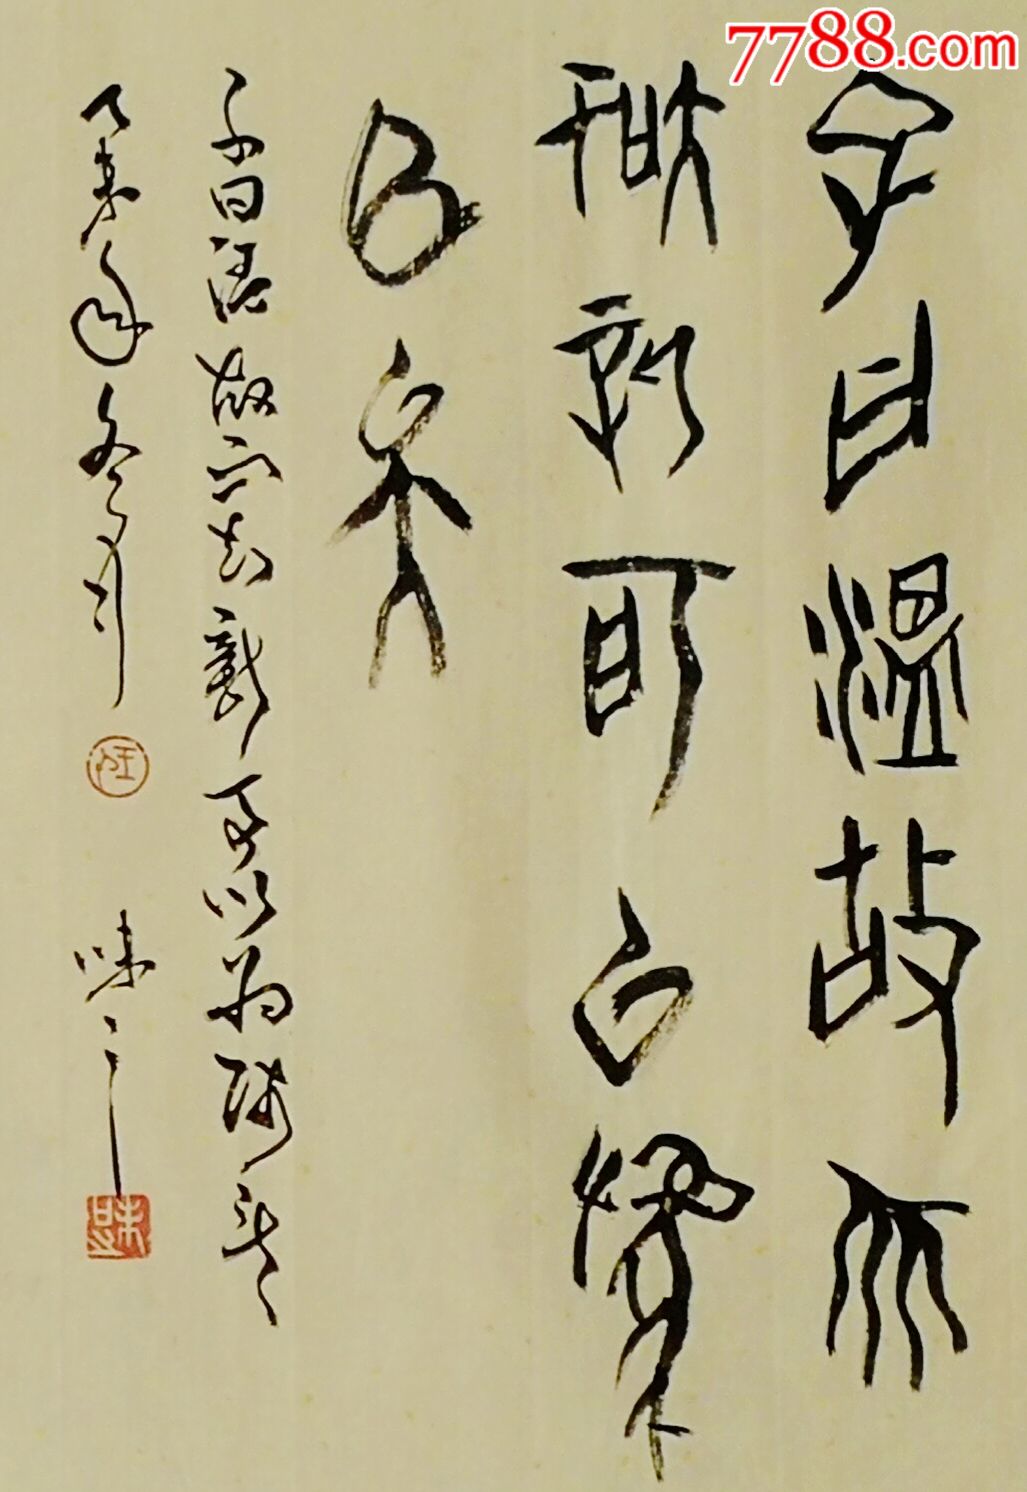 7788.com
子曰温故而
知新可以為
師矣
子曰温故而知新可以為師矣
乙未年冬月 味